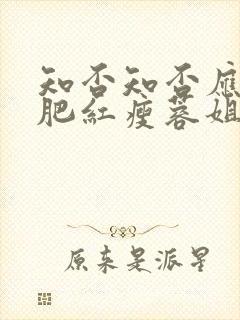 知否知否應
肥紅瘦蓉姐
原来是派星